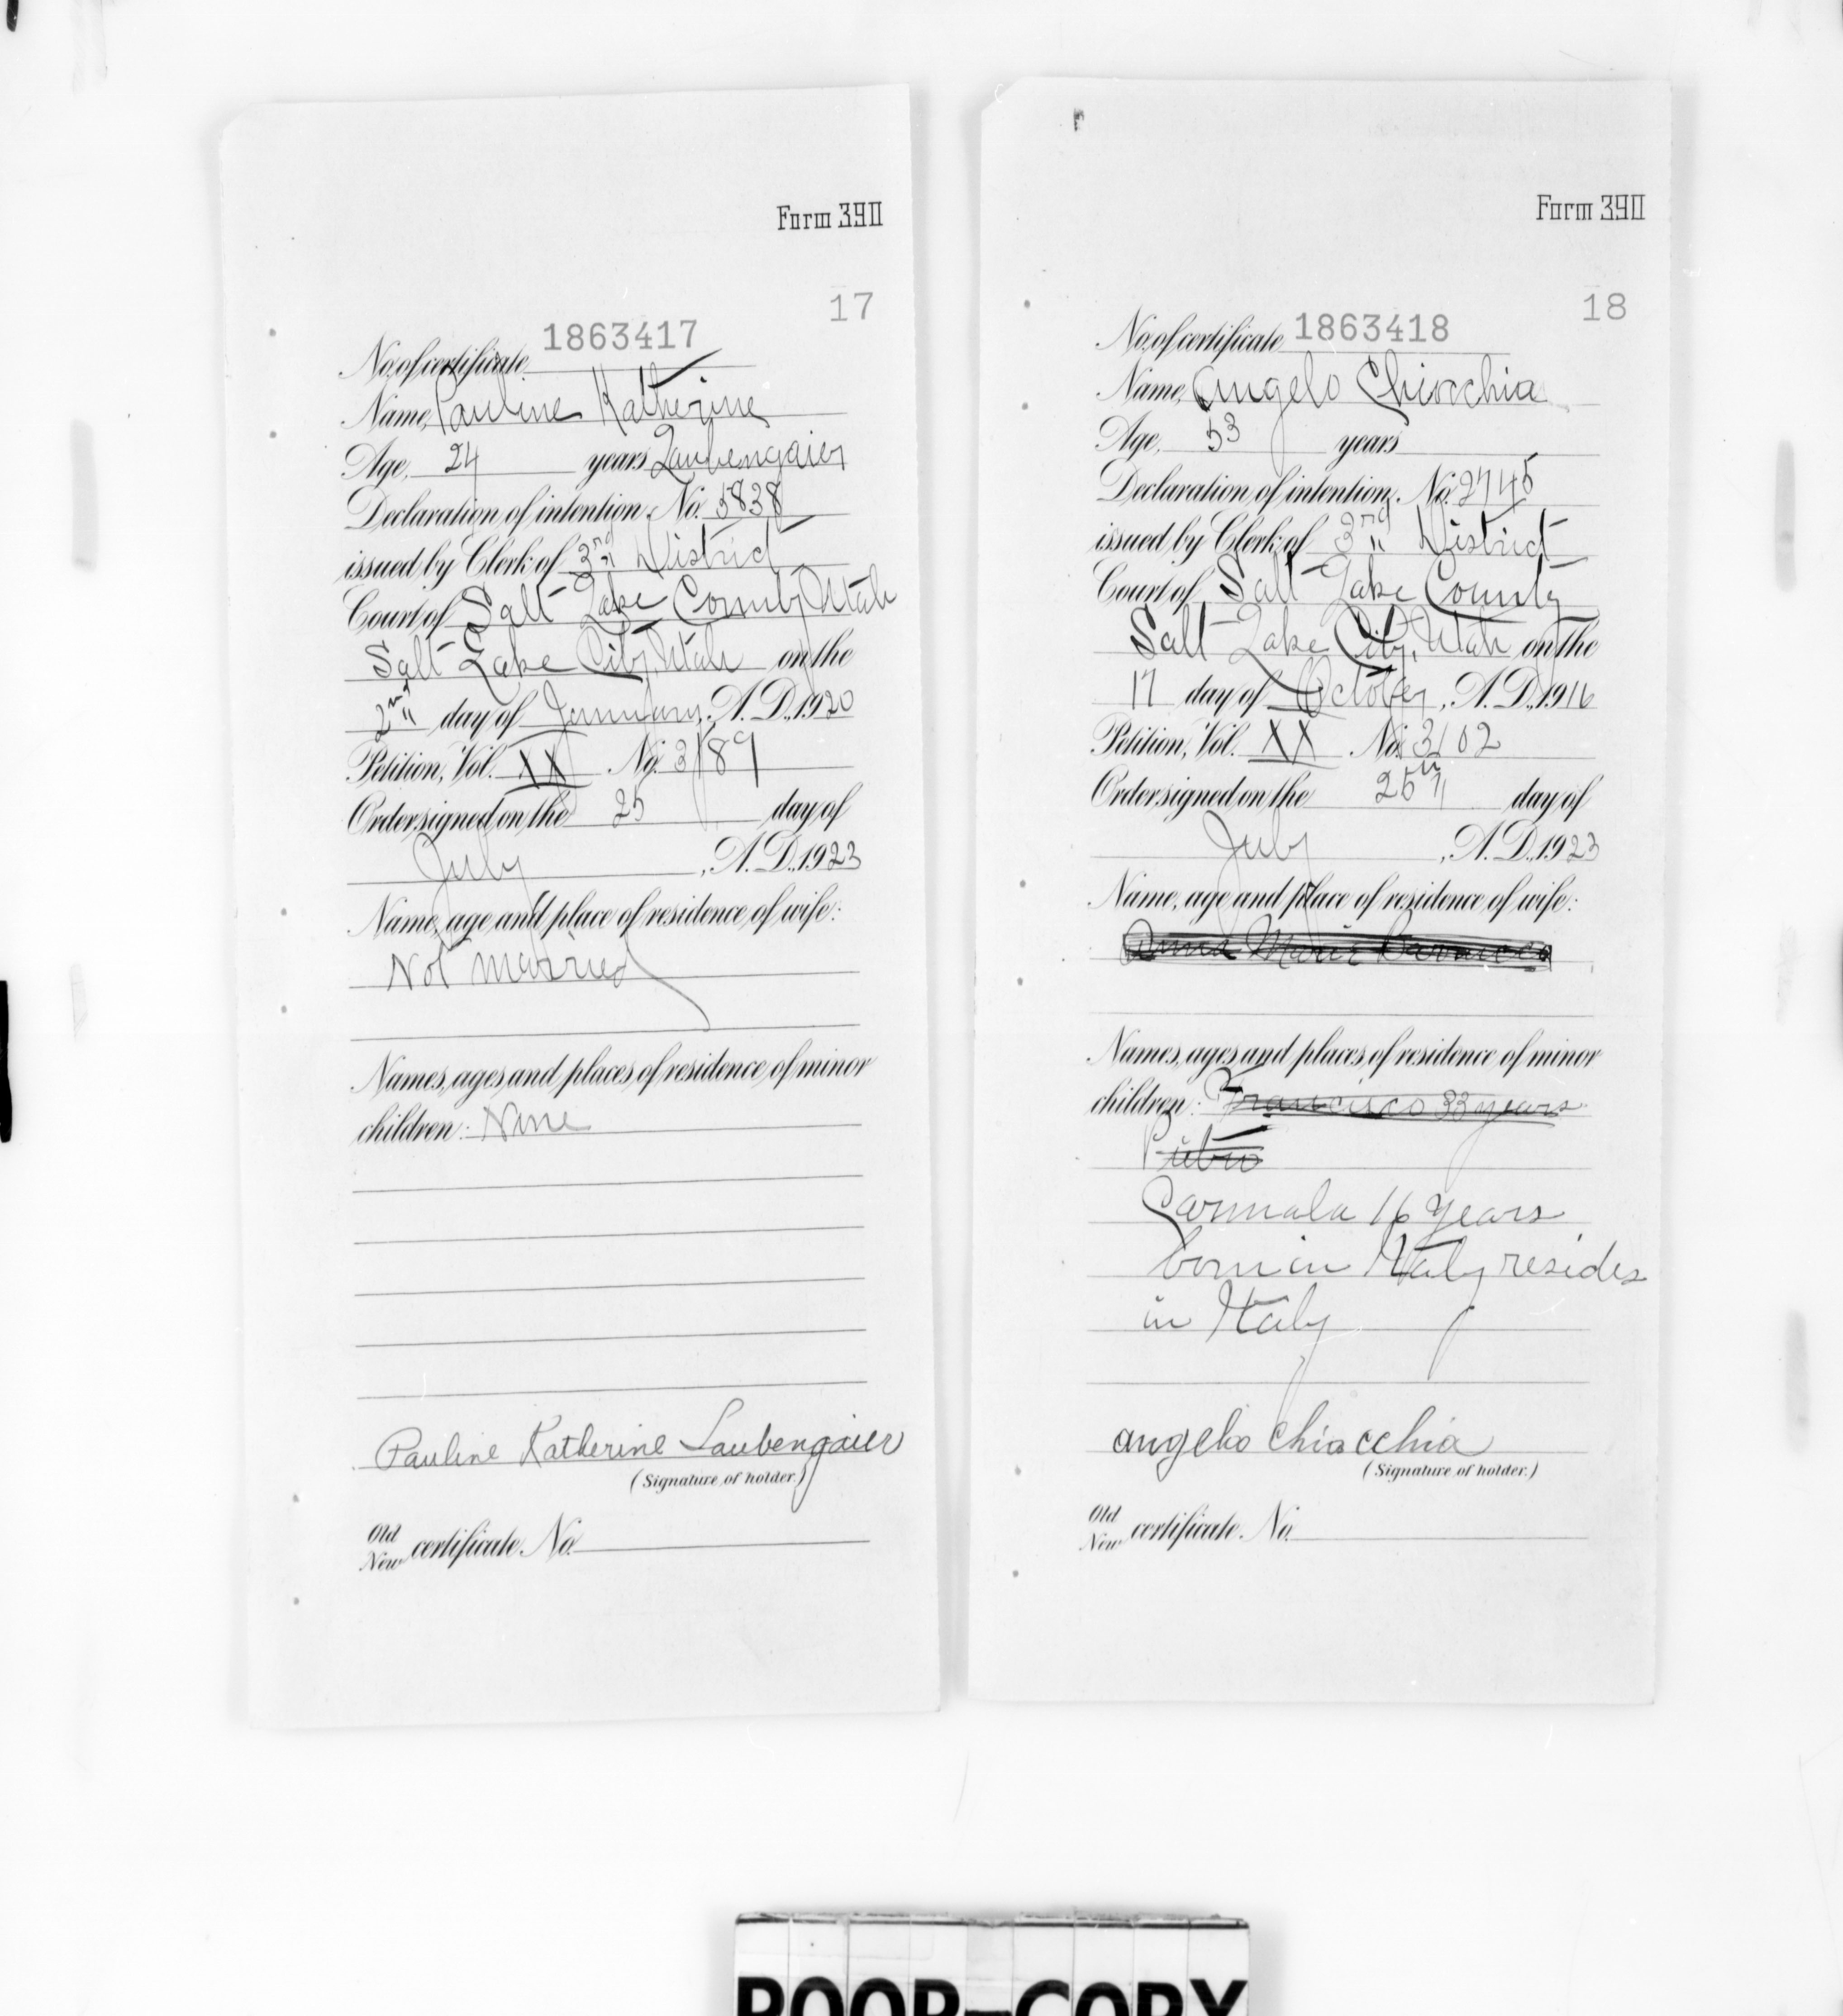 Form 390
17
No. of certificate 1863417
Name, Pauline Katherine
Age, 24 years Laubengaier
Declaration of intention, No. 5838
issued by Clerk of 3rd District
Court of Salt Lake County Utah
Salt Lake City, Utah on the
2nd day of January, A. D., 1920
Petition, Vol. XX No. 3189
Order signed on the 25 day of
July, A. D., 1923
Name, age and place of residence of wife:
Not married
Names, ages and places of residence of minor
children: None
Pauline Katherine Laubengaier
(Signature of holder.)
Old
New certificate No.
Form 390
18
No. of certificate 1863418
Name, Angelo Chiacchia
Age, 53 years
Declaration of intention, No. 2745
issued by Clerk of 3rd District
Court of Salt Lake County
Salt Lake City, Utah on the
17 day of October, A. D., 1916
Petition, Vol. XX No. 3102
Order signed on the 25th day of
July, A. D., 1923
Name, age and place of residence of wife:
Names, ages and places of residence of minor
children: Francisco 33 years
Carmala 16 years
born in Italy resides
in Italy
angelo chiacchia
(Signature of holder.)
Old
New certificate No.
POOR-COPY